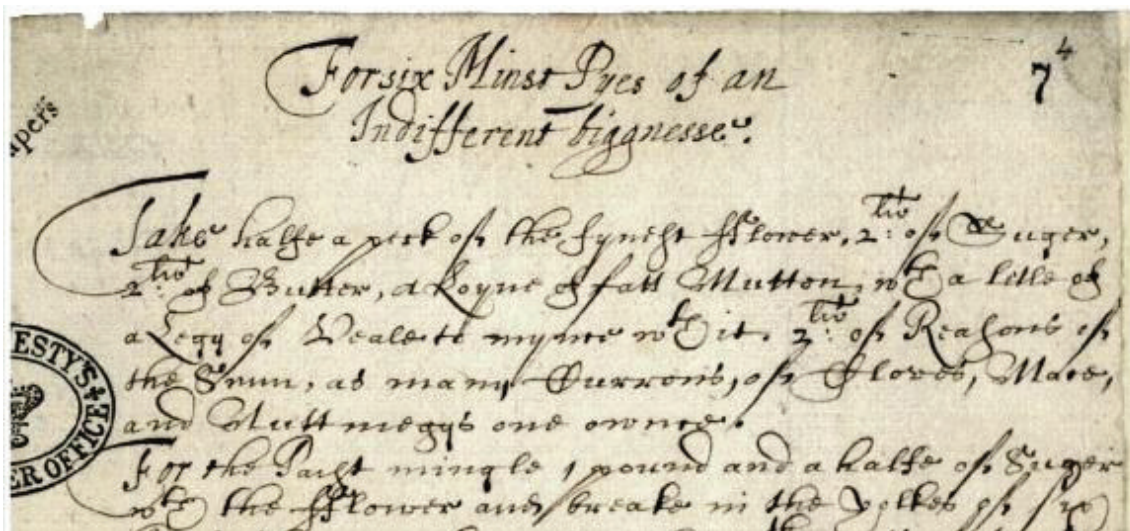 4
7
For six Minst Pyes of an
Indifferent biggnesse.
apers
Take halfe a peck of the fynest fflower, 2.li of Suger,
2.li of Butter, a Loyne of fatt Mutton, wth a litle of
a Legg of Veale to mynce wth it. 2.li of Reasons of
the Sunn, as many Currons, of Cloves, Mace,
and Nuttmeggs one ownce.
For the Past mingle 1 pound and a halfe of Suger
wth the fflower and breake in the yolkes of six
ESTY'S
ER OFFICE